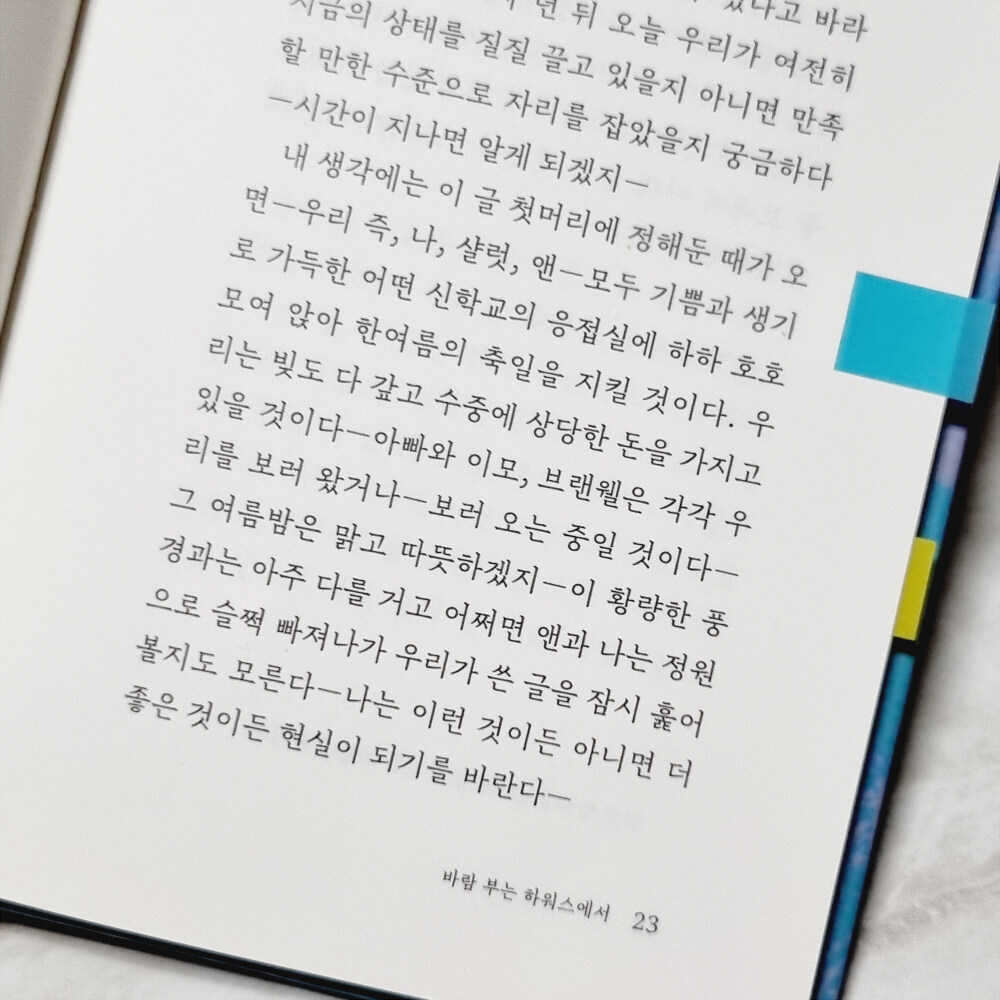 있다고 바라
년 뒤 오늘 우리가 여전히
지금의 상태를 질질 끌고 있을지 아니면 만족
할 만한 수준으로 자리를 잡았을지 궁금하다
—시간이 지나면 알게 되겠지—
내 생각에는 이 글 첫머리에 정해둔 때가 오
면—우리 즉, 나, 샬럿, 앤—모두 기쁨과 생기
로 가득한 어떤 신학교의 응접실에 하하 호호
모여 앉아 한여름의 축일을 지킬 것이다. 우
리는 빚도 다 갚고 수중에 상당한 돈을 가지고
있을 것이다—아빠와 이모, 브랜웰은 각각 우
리를 보러 왔거나—보러 오는 중일 것이다—
그 여름밤은 맑고 따뜻하겠지—이 황량한 풍
경과는 아주 다를 거고 어쩌면 앤과 나는 정원
으로 슬쩍 빠져나가 우리가 쓴 글을 잠시 훑어
볼지도 모른다—나는 이런 것이든 아니면 더
좋은 것이든 현실이 되기를 바란다—
바람 부는 하워스에서 23